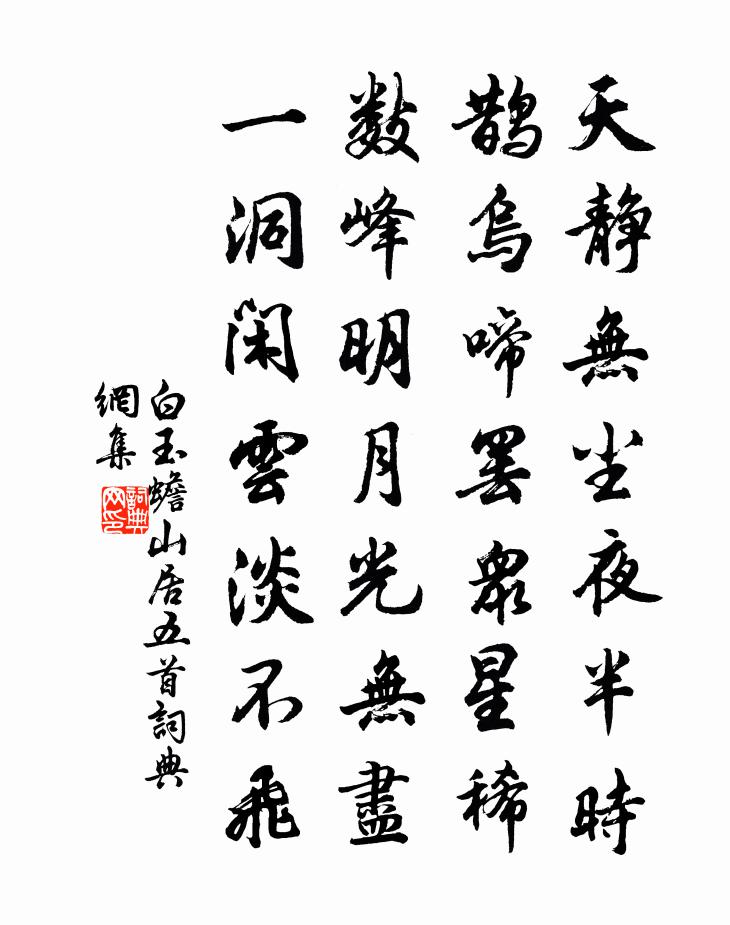 天靜無尘夜半時
鵲烏啼罢衆星稀
數峰明月光無盡
一洞闲雲淡不飛
白玉蟾山居五首詞典
網集
詞典网印